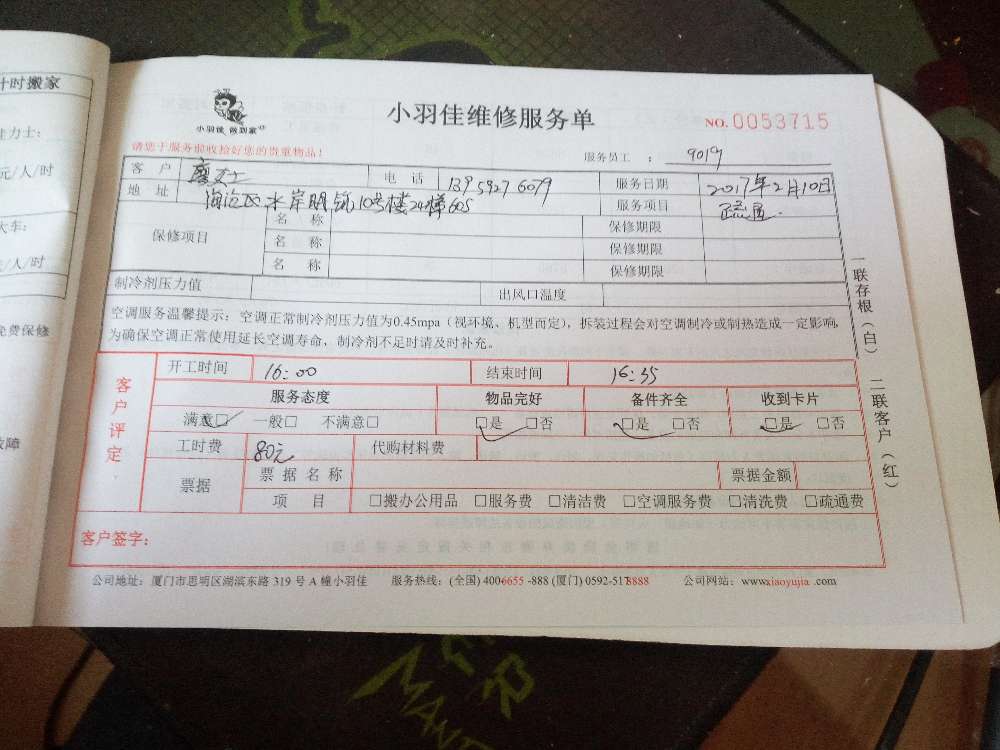 计时搬家
力士：
元/人/时
大车：
元/人/时
免费保修
故障
小羽佳 做到家
小羽佳维修服务单
NO.0053715
请您于服务前收拾好您的贵重物品！
服务员工 ： 9019
客 户 廖女士 电 话 13959276079 服务日期 2017年2月10日
地 址 海沧区水岸明筑10号楼24梯605 服务项目
保修项目
名 称 保修期限
名 称 保修期限
名 称 保修期限
制冷剂压力值 出风口温度
空调服务温馨提示：空调正常制冷剂压力值为0.45mpa（视环境、机型而定），拆装过程会对空调制冷或制热造成一定影响，
为确保空调正常使用延长空调寿命，制冷剂不足时请及时补充。
一联存根（白）
二联客户（红）
客户评定
开工时间 16:00 结束时间 16:35
服务态度 物品完好 备件齐全 收到卡片
满意□✓ 一般□ 不满意□ □是✓ □否 □是✓ □否 □是✓ □否
工时费 80元 代购材料费
票据 票 据 名 称 票据金额
项 目 □搬办公用品 □服务费 □清洁费 □空调服务费 □清洗费 □疏通费
客户签字：
公司地址：厦门市思明区湖滨东路 319 号 A 幢小羽佳 服务热线：(全国) 4006655 -888 (厦门) 0592-5178888 公司网站：www.xiaoyujia .com
MAN